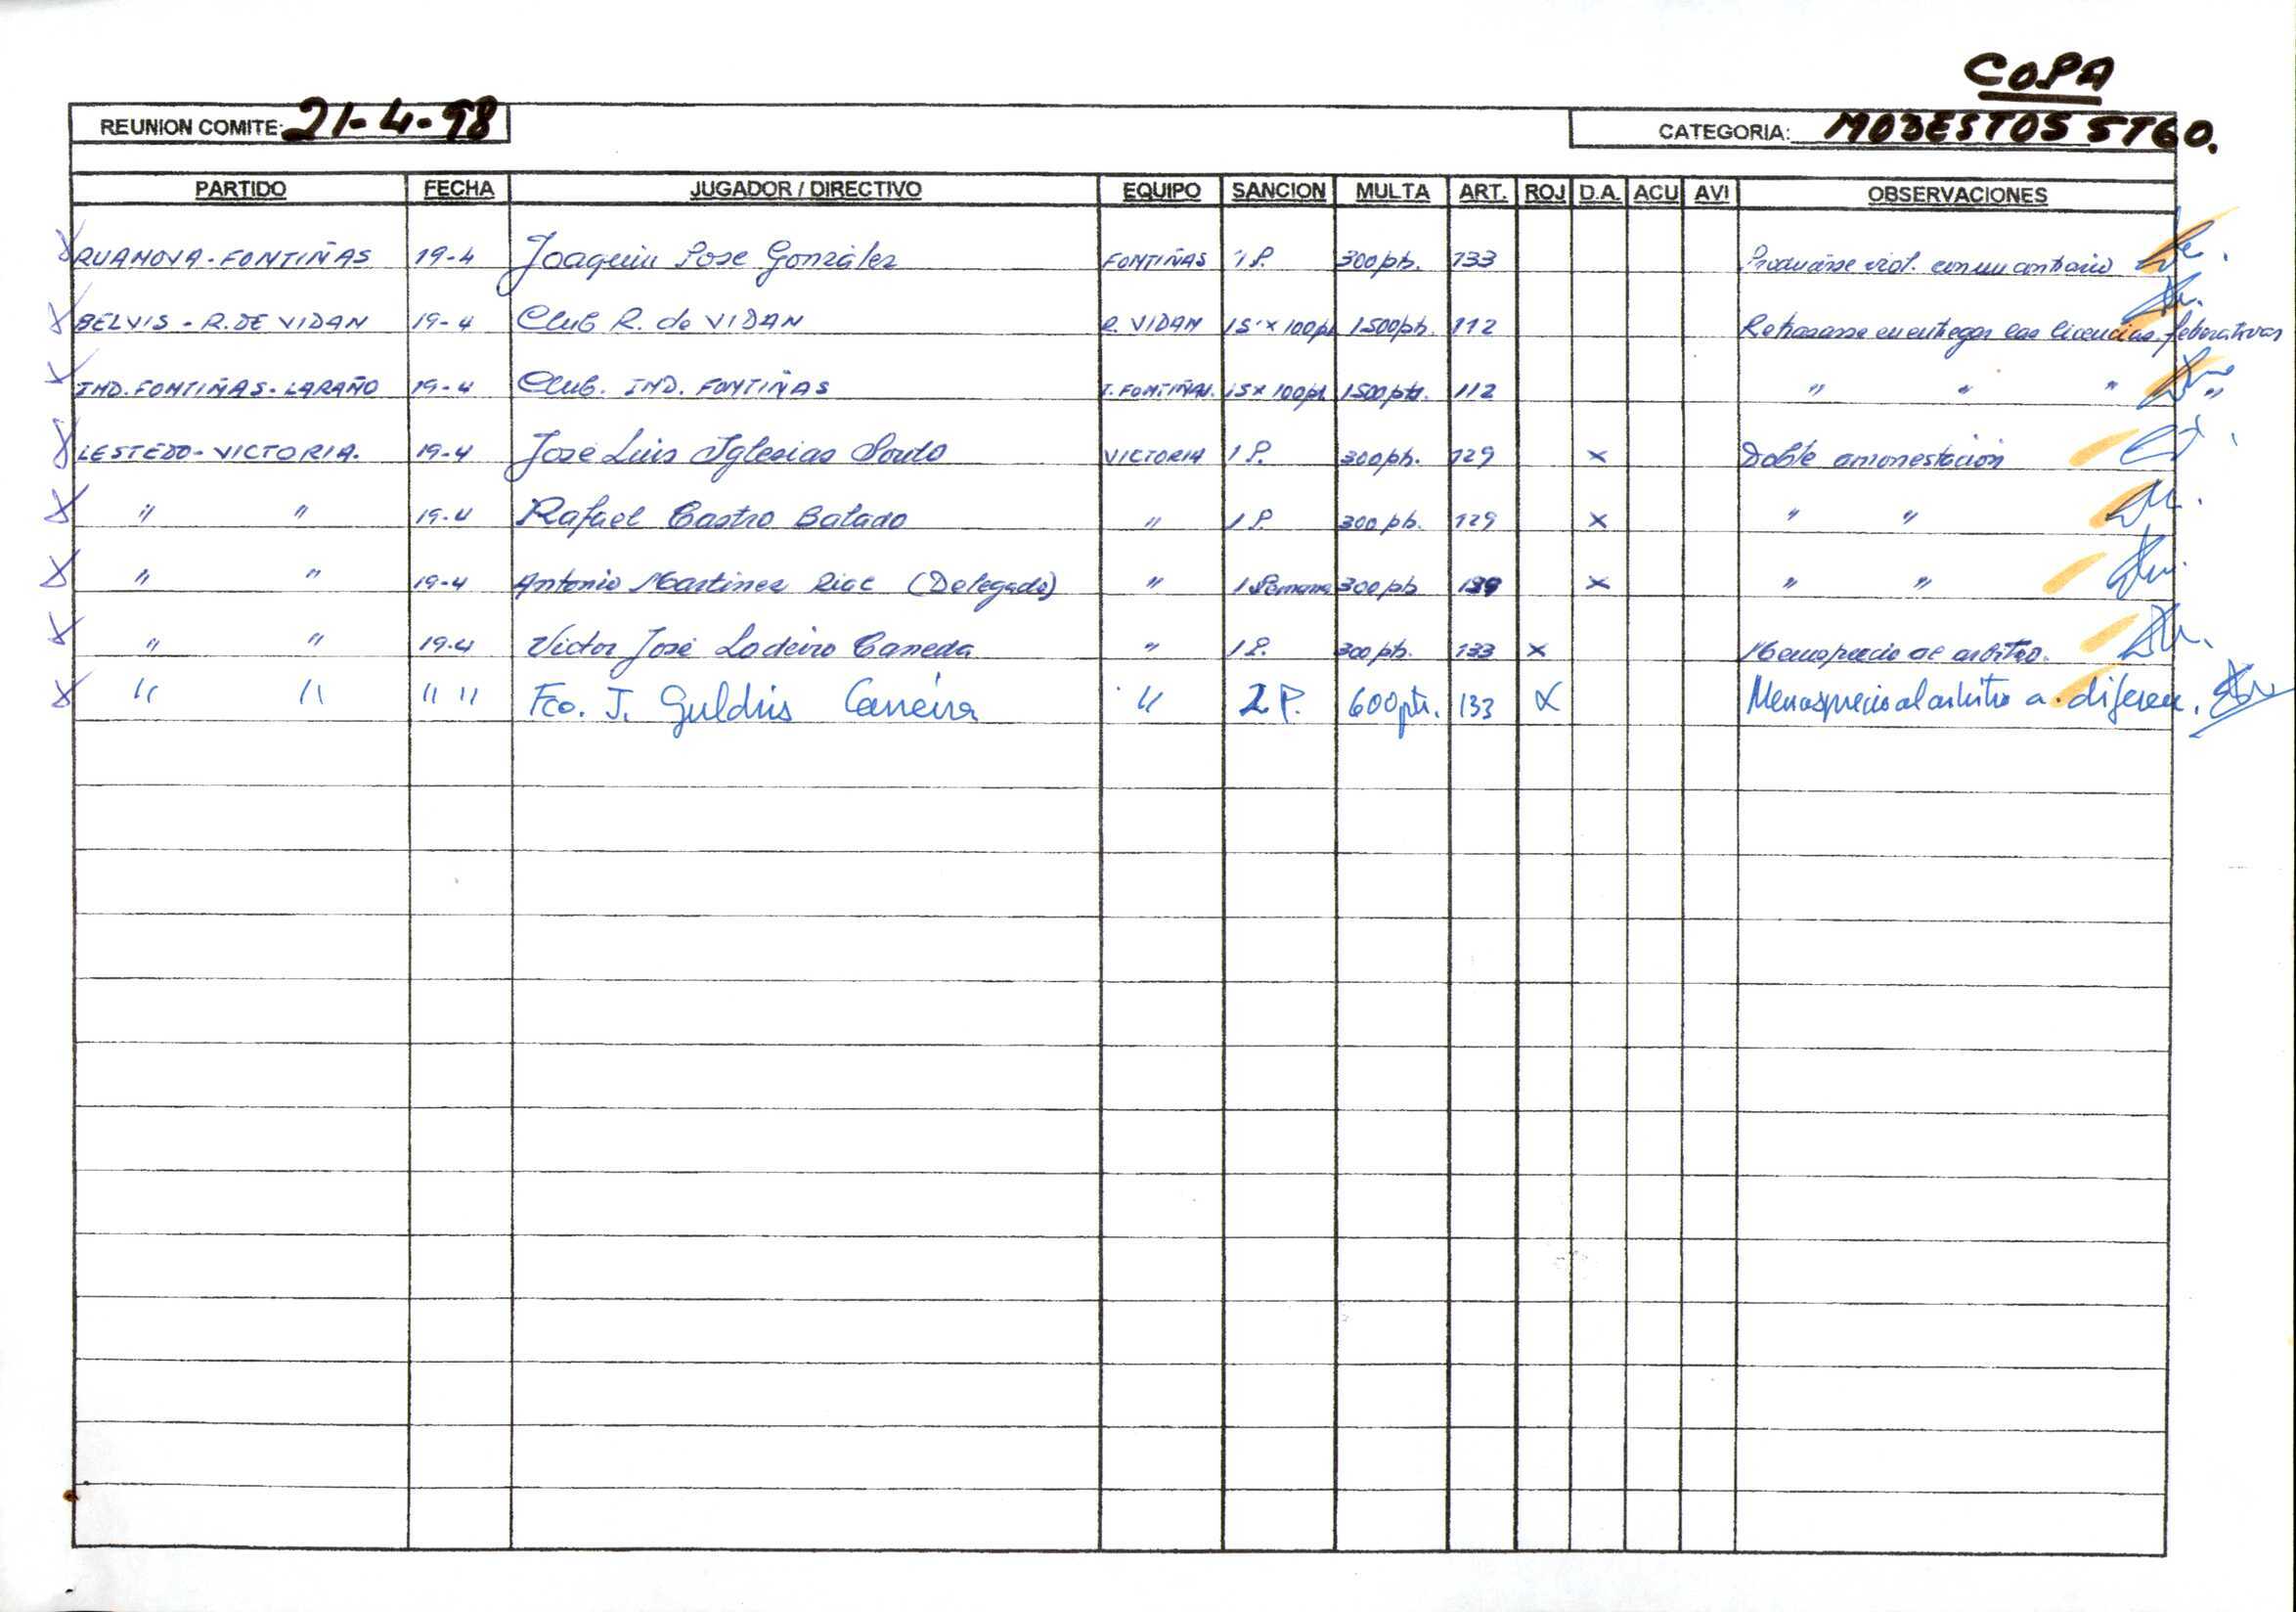 COPA
REUNION COMITE: 21-4-98 CATEGORIA: MODESTOS STGO.
PARTIDO FECHA JUGADOR / DIRECTIVO EQUIPO SANCION MULTA ART. ROJ D.A. ACU AVI OBSERVACIONES
RUANOVA - FONTIÑAS 19-4 Joaquin Pose González FONTIÑAS 1 P. 300 pts. 133 Producirse viol. con un contrario
BELVIS - R. DE VIDAN 19-4 Club R. de VIDAN R. VIDAN 15' x 100 pts 1500 pts. 112 Retrasarse en entregar las licencias federativas
IND. FONTIÑAS - LARAÑO 19-4 Club. IND. FONTIÑAS I. FONTIÑAS. 15 x 100 pts 1500 pts. 112 " " " "
LESTEDO - VICTORIA. 19-4 José Luis Iglesias Souto VICTORIA 1 P. 300 pts. 129 x Doble amonestación
" " 19-4 Rafael Castro Batado " 1 P. 300 pts. 129 x " "
" " 19-4 Antonio Martinez (Delegado) " 1 Semana 300 pts x " "
" " 19-4 Victor José Lodeiro Caneda " 1 P. 300 pts. 133 x Menosprecio al arbitro.
" " " " Fco. J. Guldris Carreira " 2 P. 600 pts. 133 x Menosprecio al arbitro a diferen.